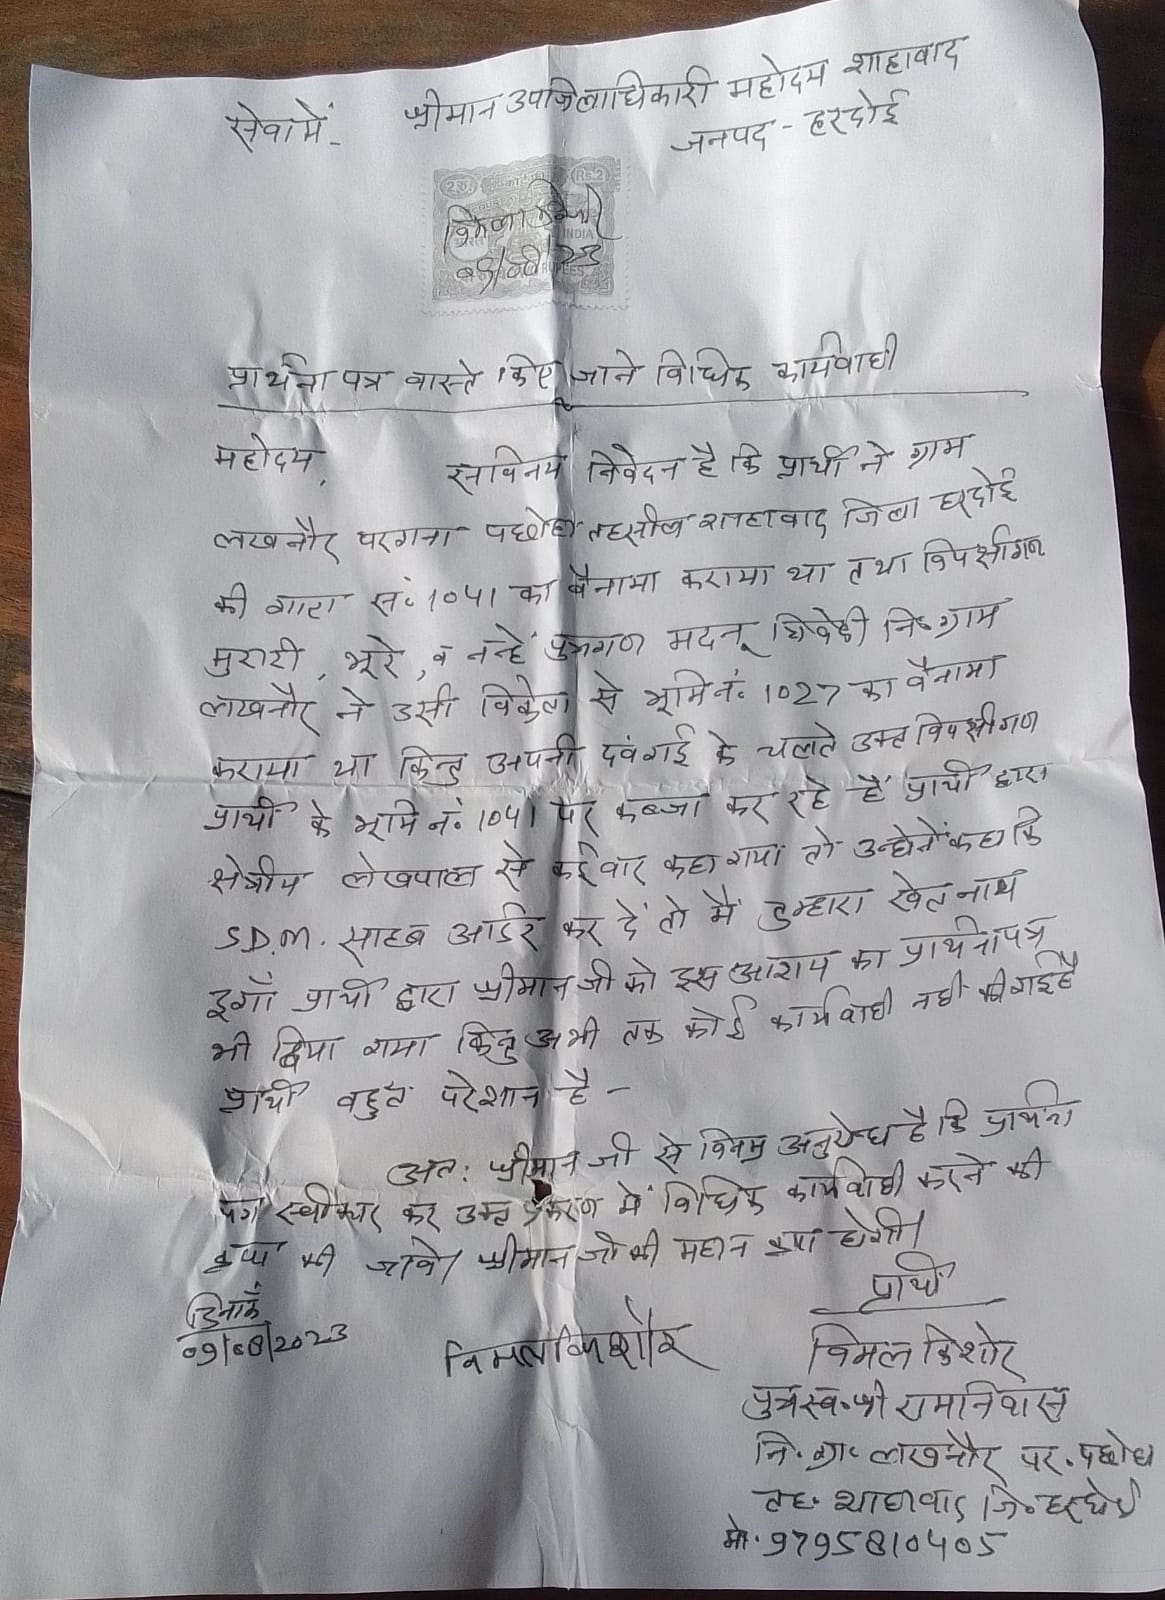 सेवा में- श्रीमान उपजिलाधिकारी महोदय शाहावाद
जनपद - हरदोई
2 रु. Rs.2
INDIA
RUPEES
प्रार्थना पत्र वास्ते किए जाने विधिक कार्यवाही
महोदय, सविनय निवेदन है कि प्रार्थी ने ग्राम
लखनौर परगना पछोहा तहसील शाहावाद जिला हरदोई
की गाटा सं. 1041 का बैनामा कराया था तथा विपक्षीगण
मुरारी, भूरे, व नन्हें पुत्रगण मदनू द्विवेदी नि. ग्राम
लखनौर ने उसी विक्रेता से भूमि नं. 1027 का बैनामा
कराया था किन्तु अपनी दवंगई के चलते उक्त विपक्षीगण
प्रार्थी के भूमि नं. 1041 पर कब्जा कर रहे हैं प्रार्थी द्वारा
क्षेत्रीय लेखपाल से कईवार कहा गया तो उन्होनें कहा कि
S.D.M. साहब आर्डर कर दें तो मैं तुम्हारा खेत नाप
दूगाँ प्रार्थी द्वारा श्रीमान जी को इस आशय का प्रार्थनापत्र
भी दिया गया किन्तु अभी तक कोई कार्यवाही नही की गई है
प्रार्थी बहुत परेशान है -
अत: श्रीमान जी से विनम्र अनुरोध है कि प्रार्थना
पत्र स्वीकार कर उक्त प्रकरण में विधिक कार्यवाही करने की
कृपा की जावे। श्रीमान जी की महान कृपा होगी।
प्रार्थी
दिनाकं
09/08/2023
विमल किशोर
विमल किशोर
पुत्र स्व. श्री रामनिवास
नि. ग्रा. लखनौर पर. पछोहा
तह. शाहावाद जि. हरदोई
मो. 9795810405